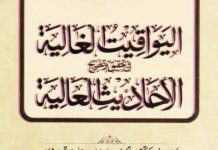 اليواقيت الغالية
في تحقيق وتخريج
الأحاديث العالية